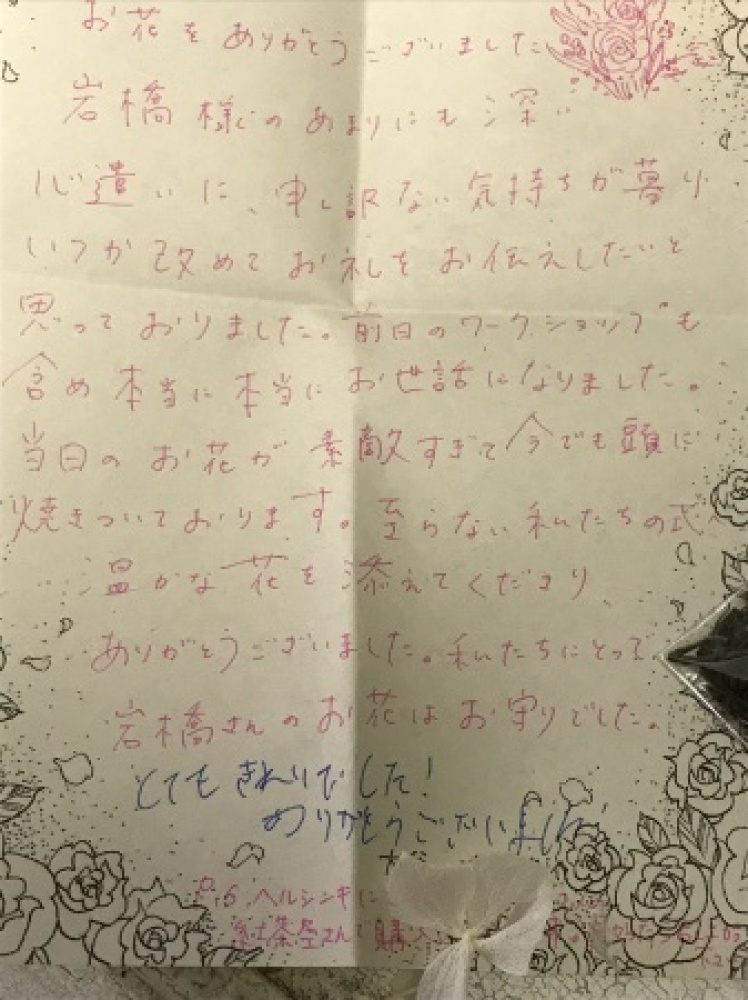 お花をありがとうございました
岩橋様のあまりにも深い
心遣いに、申し訳ない気持ちが募り
いつか改めてお礼をお伝えしたいと
思っておりました。前日のワークショップも
含め本当に本当にお世話になりました。
当日のお花が素敵すぎて今でも頭に
焼きついております。至らない私たちの式へ
温かな花を添えてくださり
ありがとうございました。私たちにとって
岩橋さんのお花はお守りでした。
とてもきれいでした!
ありがとうございました
P.S ヘルシンキに
紅茶屋さんで購入